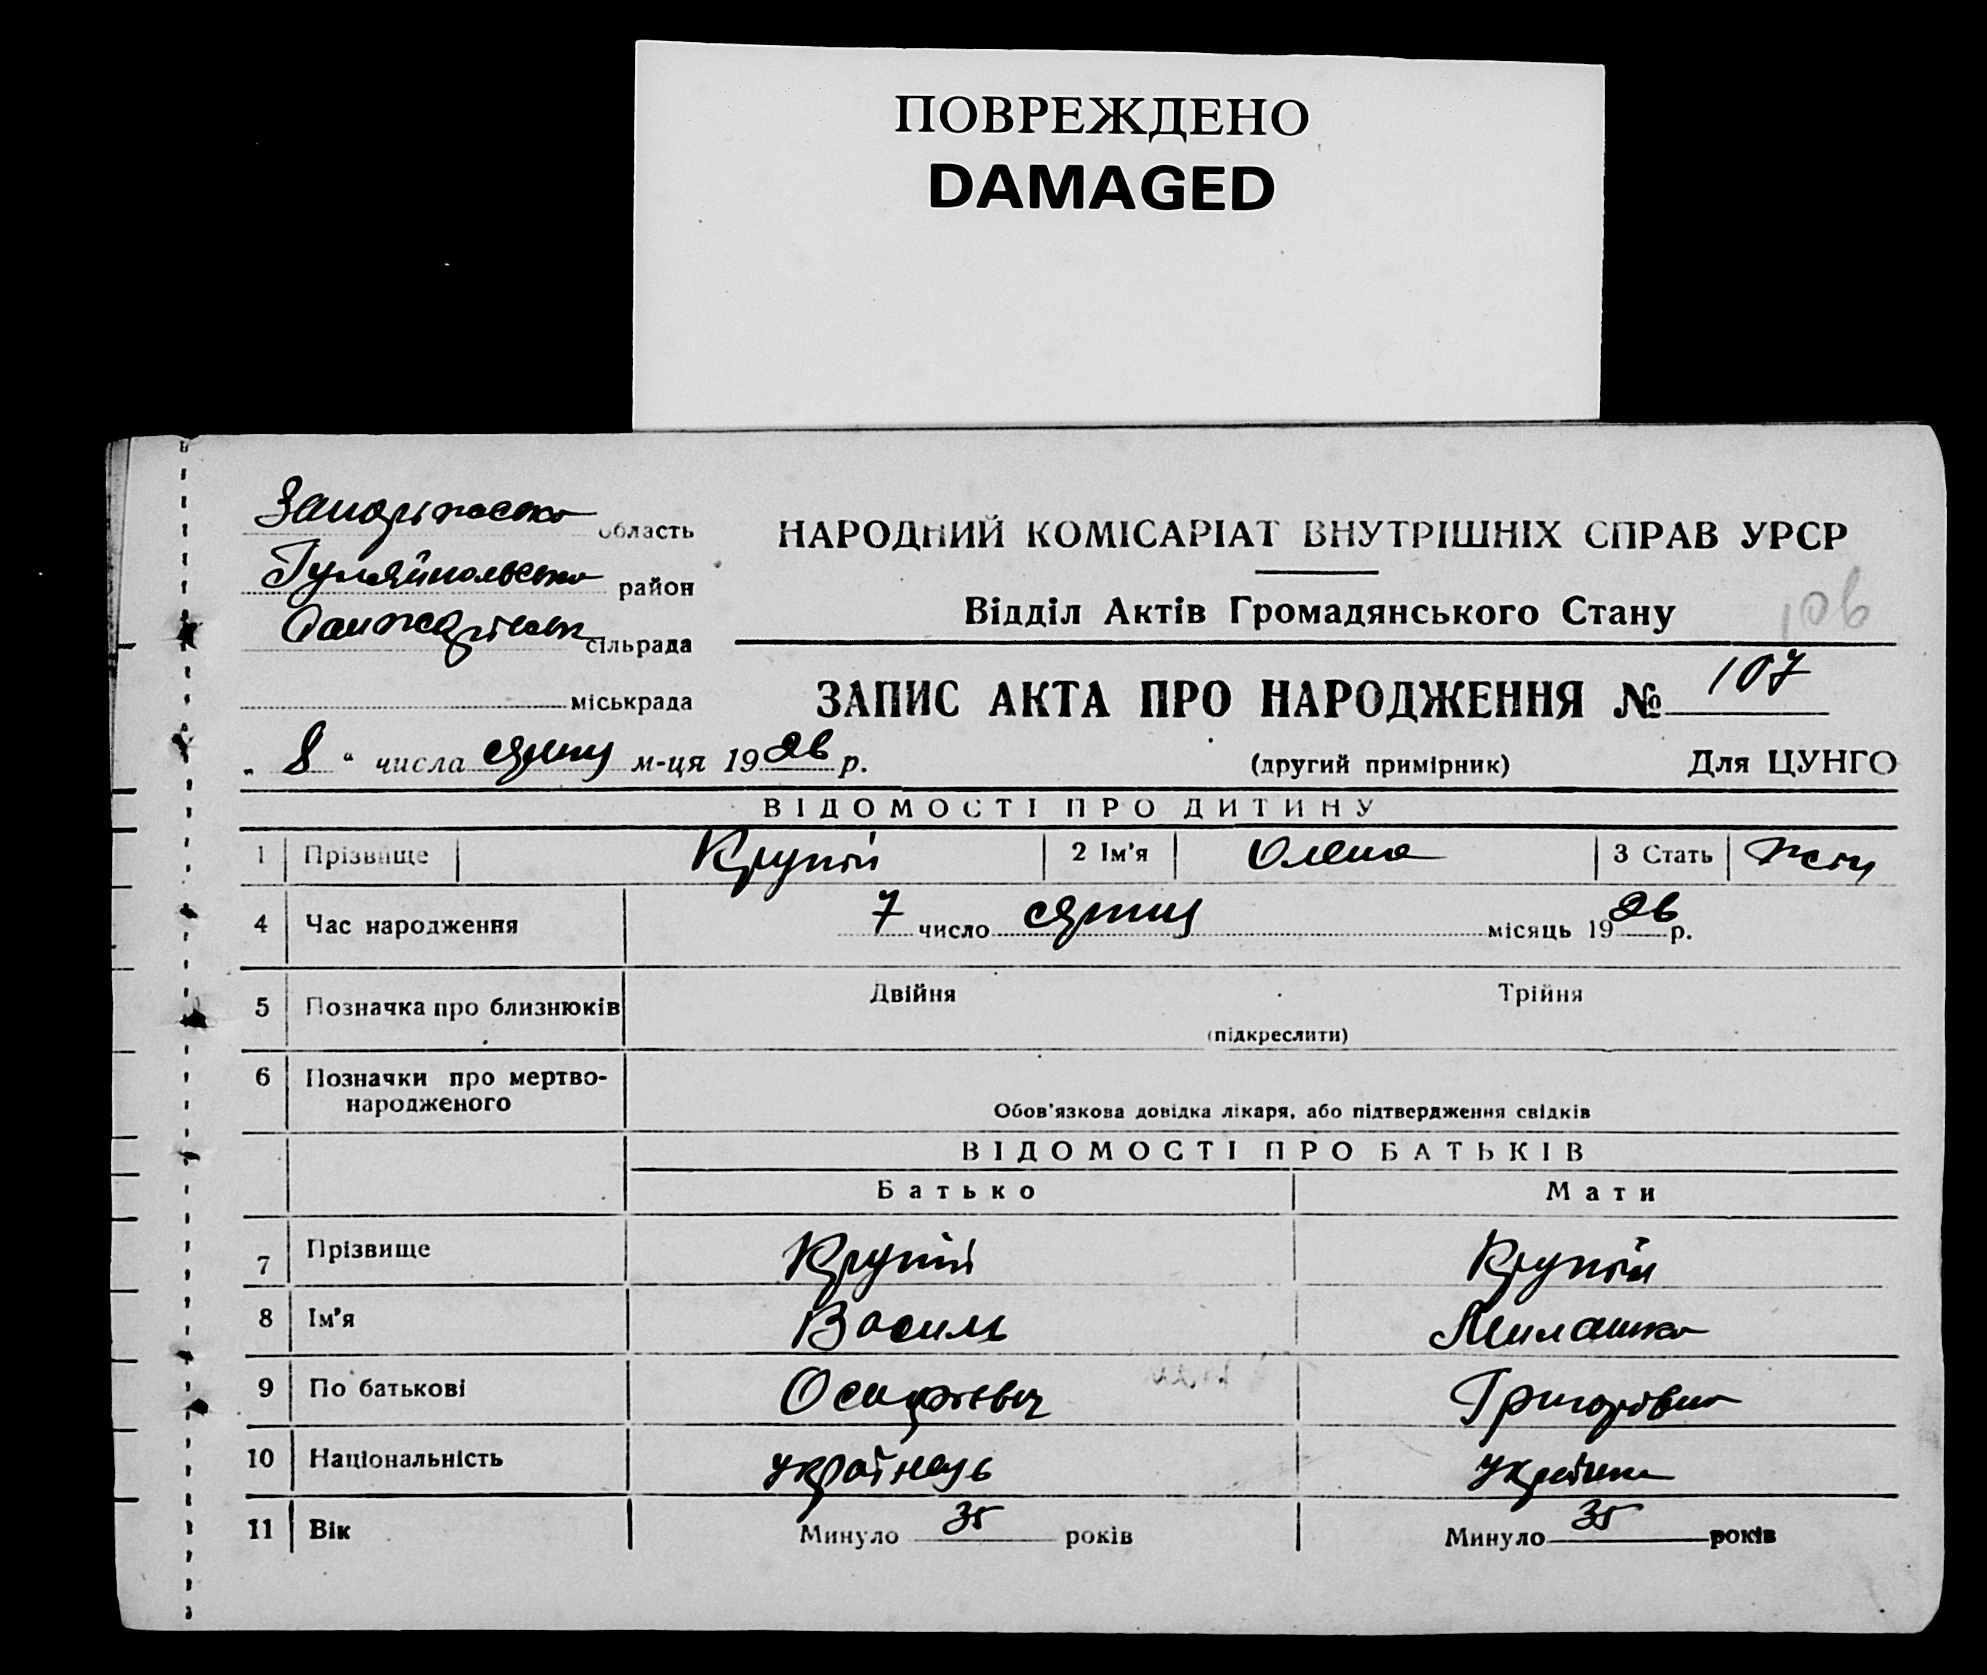 ПОВРЕЖДЕНО
DAMAGED
Запорізька область
Гуляйпольська район
сільрада
міськрада
НАРОДНИЙ КОМІСАРІАТ ВНУТРІШНІХ СПРАВ УРСР
Відділ Актів Громадянського Стану
106
ЗАПИС АКТА ПРО НАРОДЖЕННЯ № 107
„ 8 “ числа серпня м-ця 1926 р.
(другий примірник) Для ЦУНГО
ВІДОМОСТІ ПРО ДИТИНУ
1 Прізвище Крупій 2 Ім'я Олена 3 Стать жін
4 Час народження 7 число серпня місяць 1926 р.
5 Позначка про близнюків Двійня Трійня
(підкреслити)
6 Позначки про мертво-
народженого
Обов'язкова довідка лікаря, або підтвердження свідків
ВІДОМОСТІ ПРО БАТЬКІВ
Батько Мати
7 Прізвище Крупій Крупій
8 Ім'я Василь Милашка
9 По батькові Осипович Григорівна
10 Національність українець українка
11 Вік Минуло 35 років Минуло 35 років